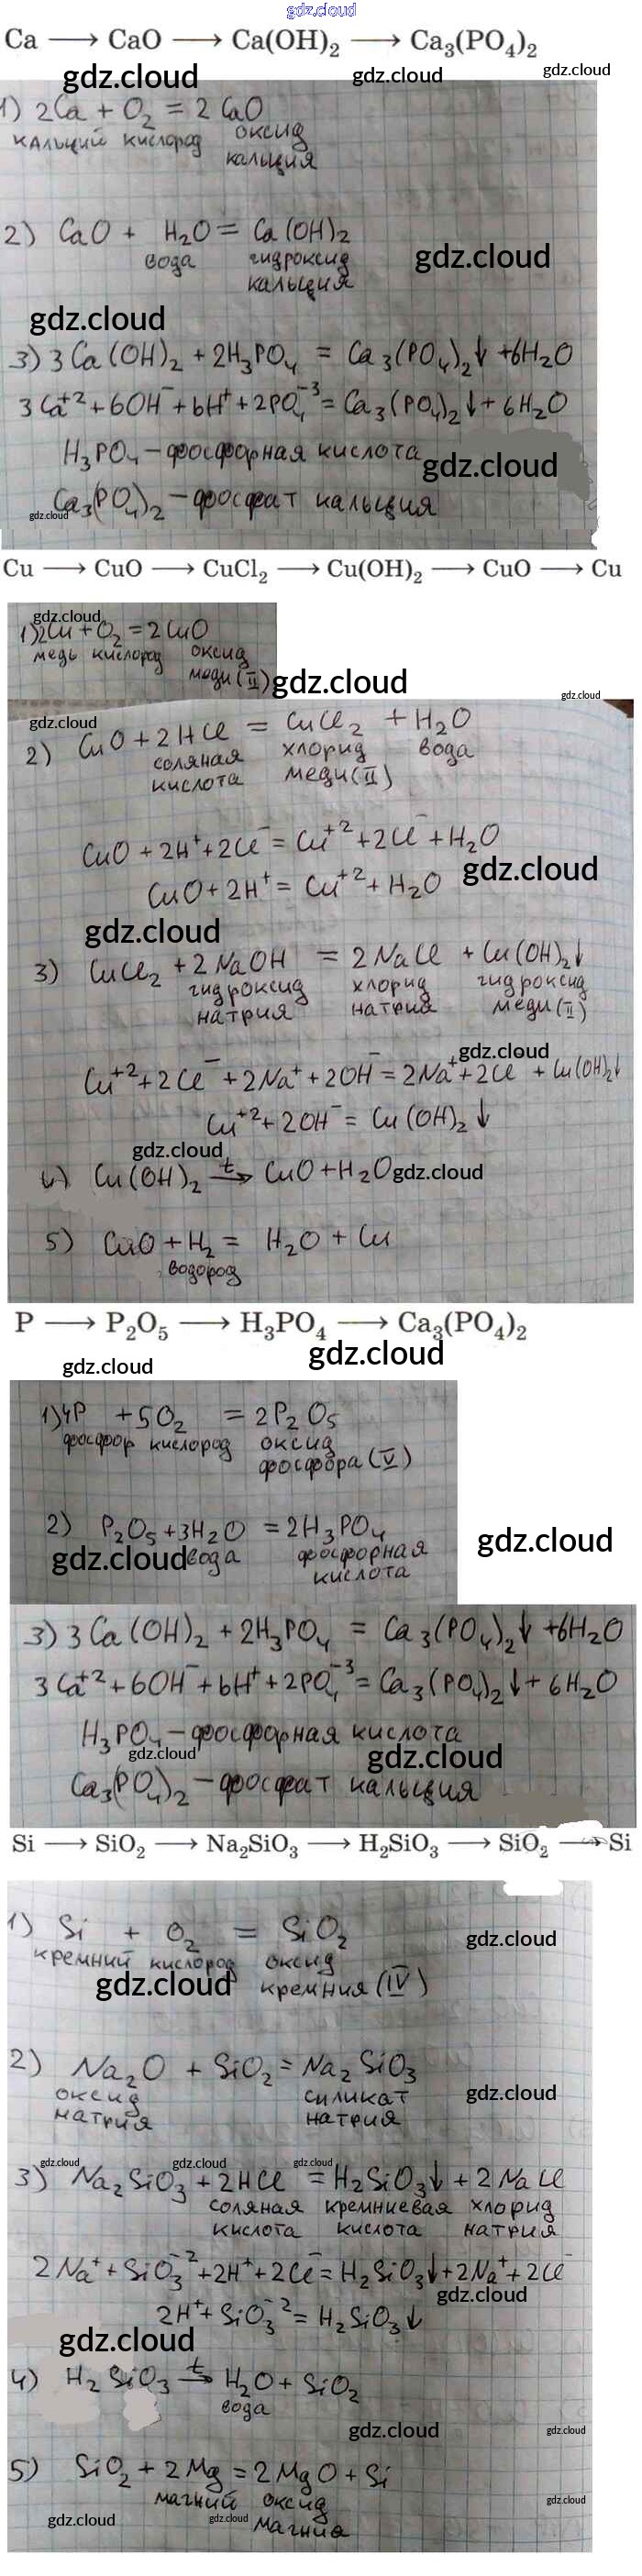 gdz.cloud
Ca ⟶ CaO ⟶ Ca(OH)₂ ⟶ Ca₃(PO₄)₂
gdz.cloud gdz.cloud gdz.cloud
1) 2Ca + O₂ = 2CaO
кальций кислород оксид
кальция
2) CaO + H₂O = Ca(OH)₂
вода гидроксид
кальция
gdz.cloud
gdz.cloud
3) 3Ca(OH)₂ + 2H₃PO₄ = Ca₃(PO₄)₂↓ + 6H₂O
3Ca⁺² + 6OH⁻ + 6H⁺ + 2PO₄⁻³ = Ca₃(PO₄)₂↓ + 6H₂O
H₃PO₄ – фосфорная кислота
gdz.cloud
Ca₃(PO₄)₂ – фосфат кальция
gdz.cloud
Cu ⟶ CuO ⟶ CuCl₂ ⟶ Cu(OH)₂ ⟶ CuO ⟶ Cu
gdz.cloud
1) 2Cu + O₂ = 2CuO
медь кислород оксид
меди (II)
gdz.cloud
gdz.cloud
gdz.cloud
2) CuO + 2HCl = CuCl₂ + H₂O
соляная хлорид вода
кислота меди (II)
CuO + 2H⁺ + 2Cl⁻ = Cu⁺² + 2Cl⁻ + H₂O
gdz.cloud
CuO + 2H⁺ = Cu⁺² + H₂O
gdz.cloud
3) CuCl₂ + 2NaOH = 2NaCl + Cu(OH)₂↓
гидроксид хлорид гидроксид
натрия натрия меди (II)
gdz.cloud
Cu⁺² + 2Cl⁻ + 2Na⁺ + 2OH⁻ = 2Na⁺ + 2Cl⁻ + Cu(OH)₂↓
Cu⁺² + 2OH⁻ = Cu(OH)₂↓
gdz.cloud
4) Cu(OH)₂ t→ CuO + H₂O
gdz.cloud
5) CuO + H₂ = H₂O + Cu
водород
P ⟶ P₂O₅ ⟶ H₃PO₄ ⟶ Ca₃(PO₄)₂
gdz.cloud
gdz.cloud
1) 4P + 5O₂ = 2P₂O₅
фосфор кислород оксид
фосфора (V)
2) P₂O₅ + 3H₂O = 2H₃PO₄
gdz.cloud
вода фосфорная
gdz.cloud
кислота
3) 3Ca(OH)₂ + 2H₃PO₄ = Ca₃(PO₄)₂↓ + 6H₂O
3Ca⁺² + 6OH⁻ + 6H⁺ + 2PO₄⁻³ = Ca₃(PO₄)₂↓ + 6H₂O
H₃PO₄ – фосфорная кислота
gdz.cloud gdz.cloud
Ca₃(PO₄)₂ – фосфат кальция
Si ⟶ SiO₂ ⟶ Na₂SiO₃ ⟶ H₂SiO₃ ⟶ SiO₂ ⟶ Si
1) Si + O₂ = SiO₂
gdz.cloud
кремний кислород оксид
кремния (IV)
gdz.cloud
2) Na₂O + SiO₂ = Na₂SiO₃
оксид силикат
натрия натрия
gdz.cloud
gdz.cloud gdz.cloud gdz.cloud
3) Na₂SiO₃ + 2HCl = H₂SiO₃↓ + 2NaCl
соляная кремниевая хлорид
кислота кислота натрия
2Na⁺ + SiO₃⁻² + 2H⁺ + 2Cl⁻ = H₂SiO₃↓ + 2Na⁺ + 2Cl⁻
gdz.cloud
2H⁺ + SiO₃⁻² = H₂SiO₃↓
gdz.cloud
4) H₂SiO₃ t→ H₂O + SiO₂
вода
gdz.cloud gdz.cloud
5) SiO₂ + 2Mg = 2MgO + Si
магний оксид
магния
gdz.cloud
gdz.cloud gdz.cloud